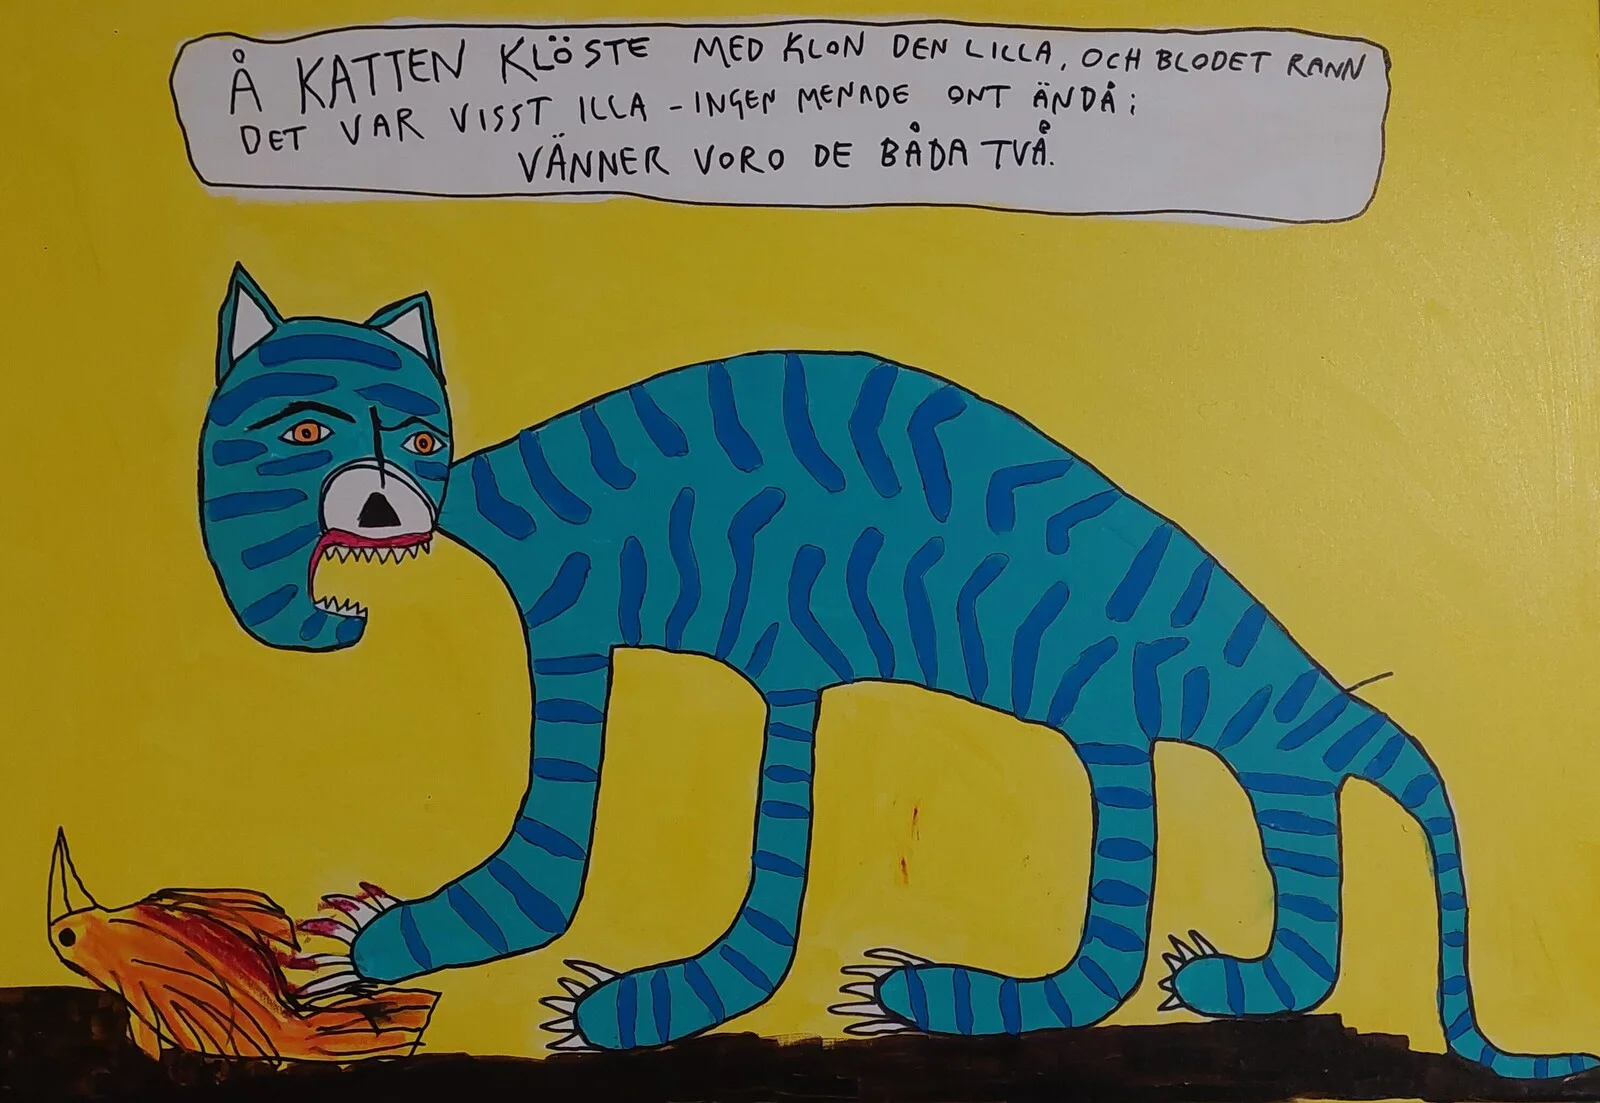 Å KATTEN KLÖSTE MED KLON DEN LILLA, OCH BLODET RANN
DET VAR VISST ILLA - INGEN MENADE ONT ÄNDÅ;
VÄNNER VORO DE BÅDA TVÅ.